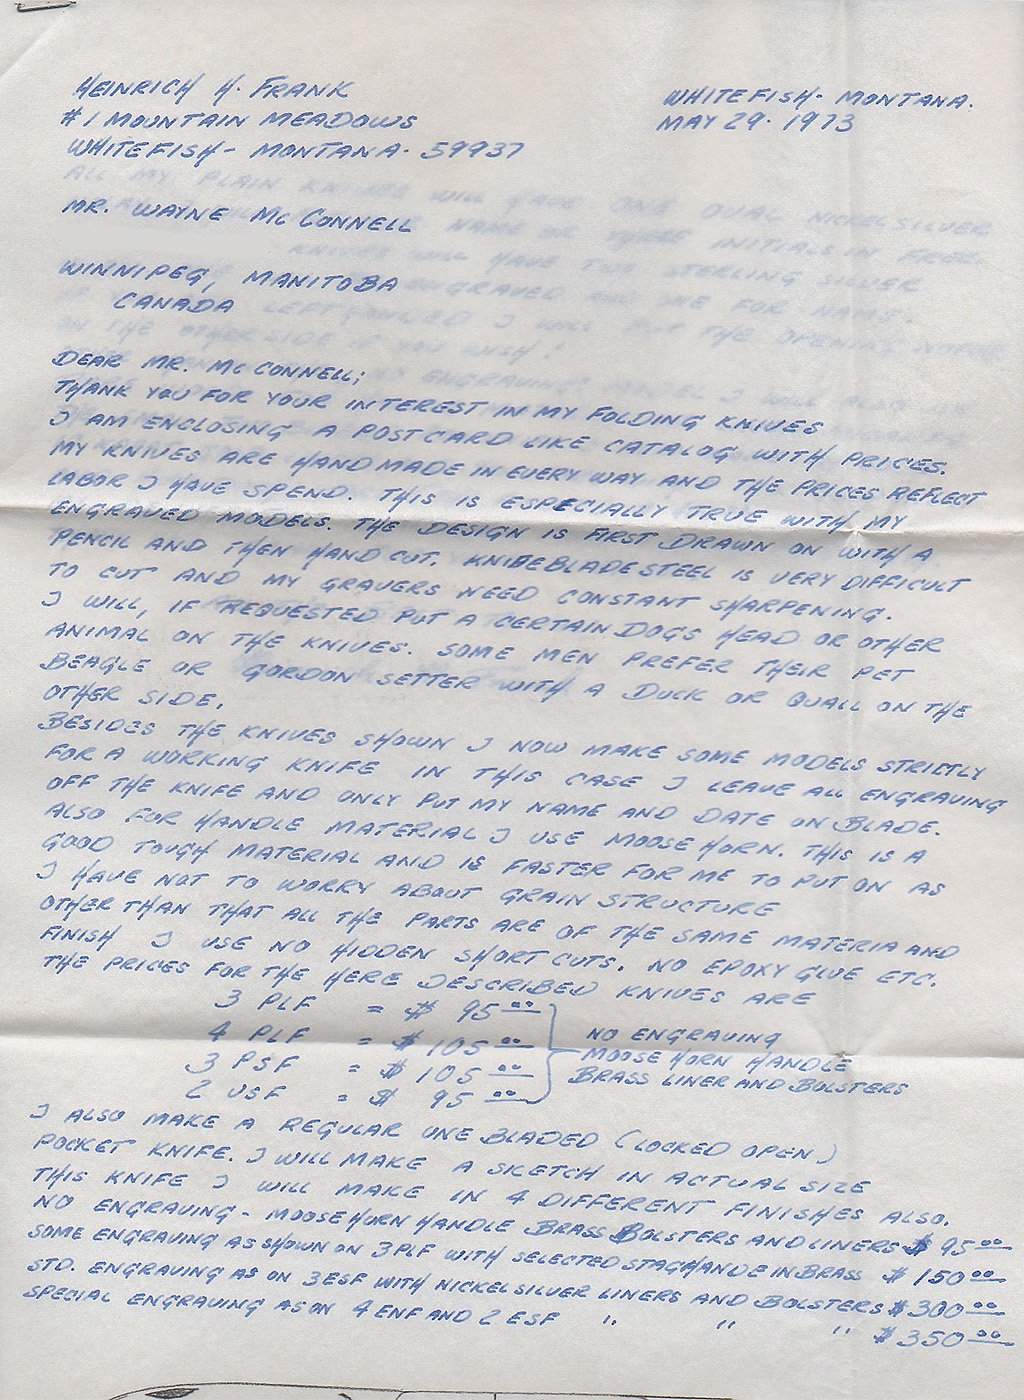 HEINRICH H. FRANK
WHITEFISH - MONTANA.
# 1 MOUNTAIN MEADOWS
MAY 29. 1973
WHITEFISH - MONTANA. 59937
MR. WAYNE MC CONNELL
WINNIPEG, MANITOBA
CANADA
DEAR MR. MC CONNELL;
THANK YOU FOR YOUR INTEREST IN MY FOLDING KNIVES
I AM ENCLOSING A POSTCARD LIKE CATALOG WITH PRICES.
MY KNIVES ARE HANDMADE IN EVERY WAY AND THE PRICES REFLECT
LABOR I HAVE SPEND. THIS IS ESPECIALLY TRUE WITH MY
ENGRAVED MODELS. THE DESIGN IS FIRST DRAWN ON WITH A
PENCIL AND THEN HAND CUT. KNIFEBLADESTEEL IS VERY DIFFICULT
TO CUT AND MY GRAVERS NEED CONSTANT SHARPENING.
I WILL, IF REQUESTED PUT A CERTAIN DOGS HEAD OR OTHER
ANIMAL ON THE KNIVES. SOME MEN PREFER THEIR PET
BEAGLE OR GORDON SETTER WITH A DUCK OR QUAIL ON THE
OTHER SIDE.
BESIDES THE KNIVES SHOWN I NOW MAKE SOME MODELS STRICTLY
FOR A WORKING KNIFE IN THIS CASE I LEAVE ALL ENGRAVING
OFF THE KNIFE AND ONLY PUT MY NAME AND DATE ON BLADE.
ALSO FOR HANDLE MATERIAL I USE MOOSE HORN. THIS IS A
GOOD TOUGH MATERIAL AND IS FASTER FOR ME TO PUT ON AS
I HAVE NOT TO WORRY ABOUT GRAIN STRUCTURE
OTHER THAN THAT ALL THE PARTS ARE OF THE SAME MATERIA AND
FINISH I USE NO HIDDEN SHORT CUTS. NO EPOXY GLUE ETC.
THE PRICES FOR THE HERE DESCRIBED KNIVES ARE
3 PLF = $ 95 00
4 PLF = $ 105 00
3 PSF = $ 105 00
2 USF = $ 95 00
NO ENGRAVING
MOOSE HORN HANDLE
BRASS LINER AND BOLSTERS
I ALSO MAKE A REGULAR ONE BLADED (LOCKED OPEN)
POCKET KNIFE. I WILL MAKE A SKETCH IN ACTUAL SIZE
THIS KNIFE I WILL MAKE IN 4 DIFFERENT FINISHES ALSO.
NO ENGRAVING - MOOSE HORN HANDLE BRASS BOLSTERS AND LINERS $ 95 00
SOME ENGRAVING AS SHOWN ON 3PLF WITH SELECTED STAGHANDE IN BRASS $ 150 00
STD. ENGRAVING AS ON 3ESF WITH NICKELSILVER LINERS AND BOLSTERS $ 300 00
SPECIAL ENGRAVING AS ON 4 ENF AND 2 ESF " " " $ 350 00